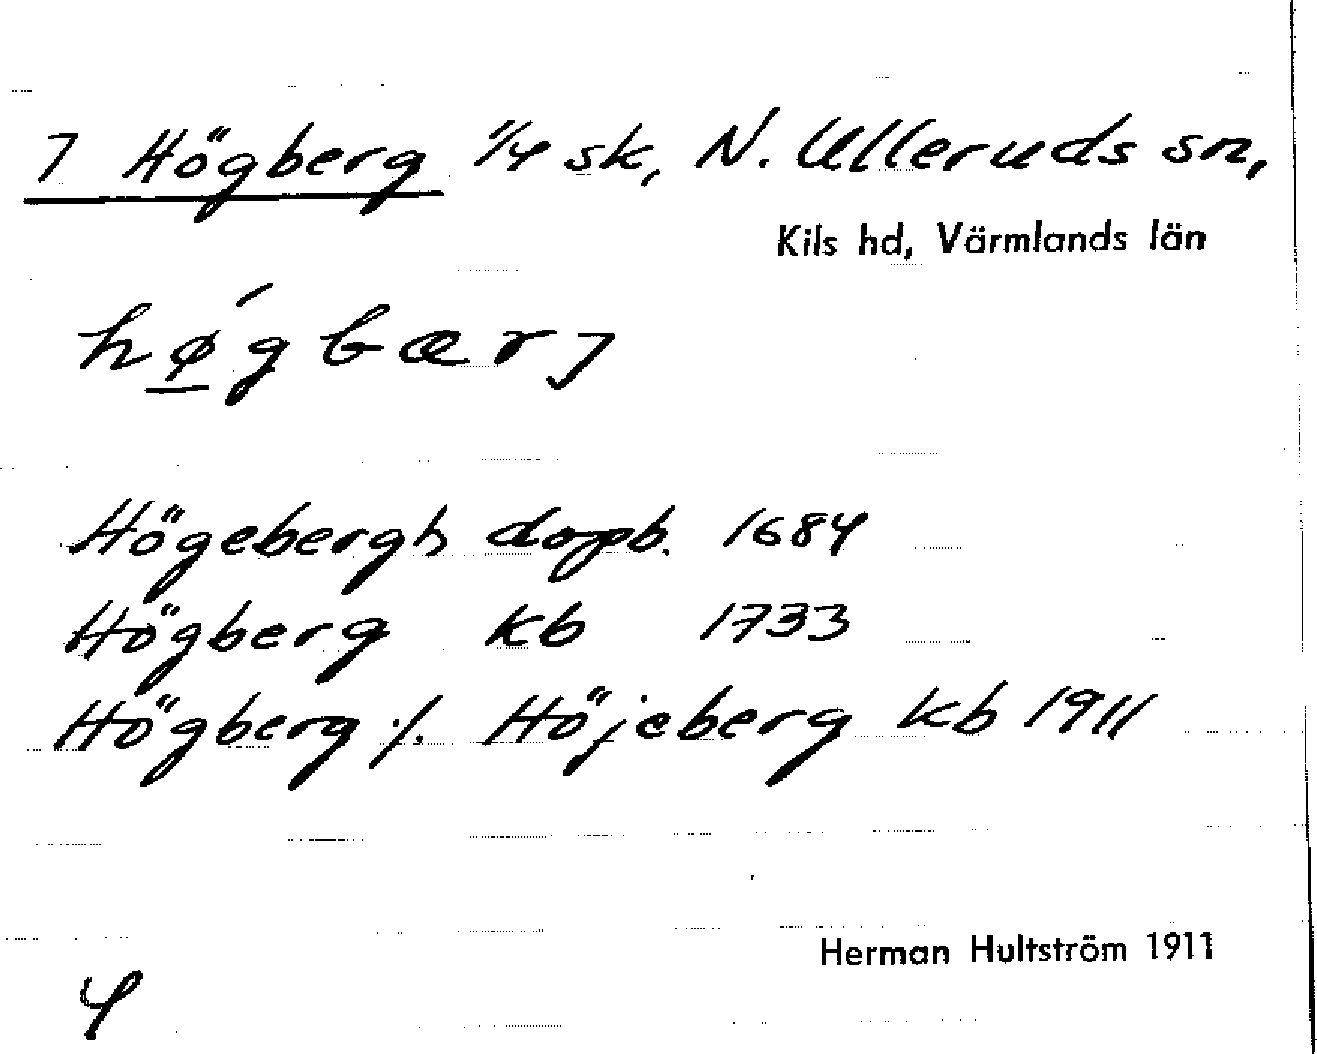 7 Högberg 1/4 sk, N. Ulleruds sn,
Kils hd, Värmlands län
hǿ̲gbærj
Högebergh dopb. 1684
Högberg kb 1733
Högberg ./. Höjeberg kb 1911
Herman Hultström 1911
4